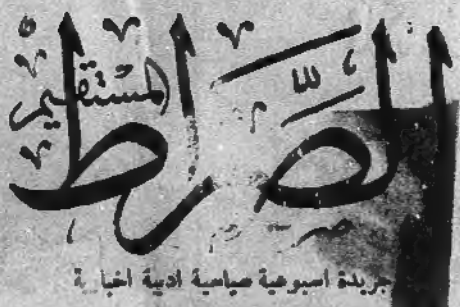 الصراط المستقيم
جريدة اسبوعية سياسية ادبية اخبارية